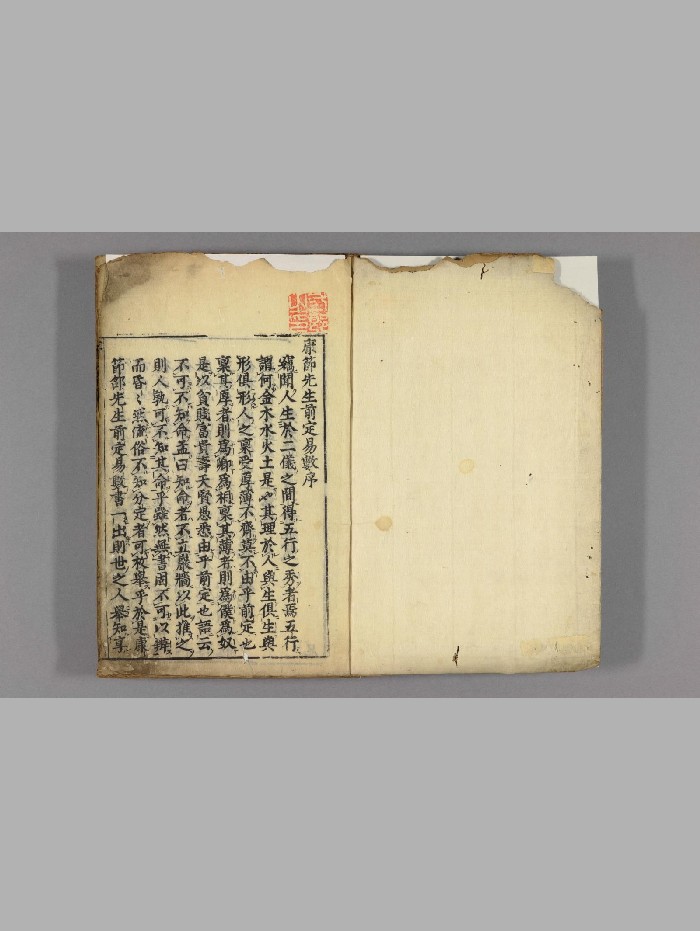 康節先生前定易數序
竊聞人生於二儀之間得五行之秀者爲五行
謂何金木水火土是也其理於人與生俱生與
形俱形人之稟受厚薄不齊莫不由乎前定也
稟其厚者則爲卿爲相稟其薄者則爲僕爲奴
是以貧賤富貴壽夭賢愚悉由乎前定也語云
不可不知命孟曰知命者不立巖牆以此推之
則人孰可不知其命乎雖然無書固不可以辨
而昏〻燕俗不知分定者可枚舉乎於是康
節邵先生前定易數書一出則世之人舉知享